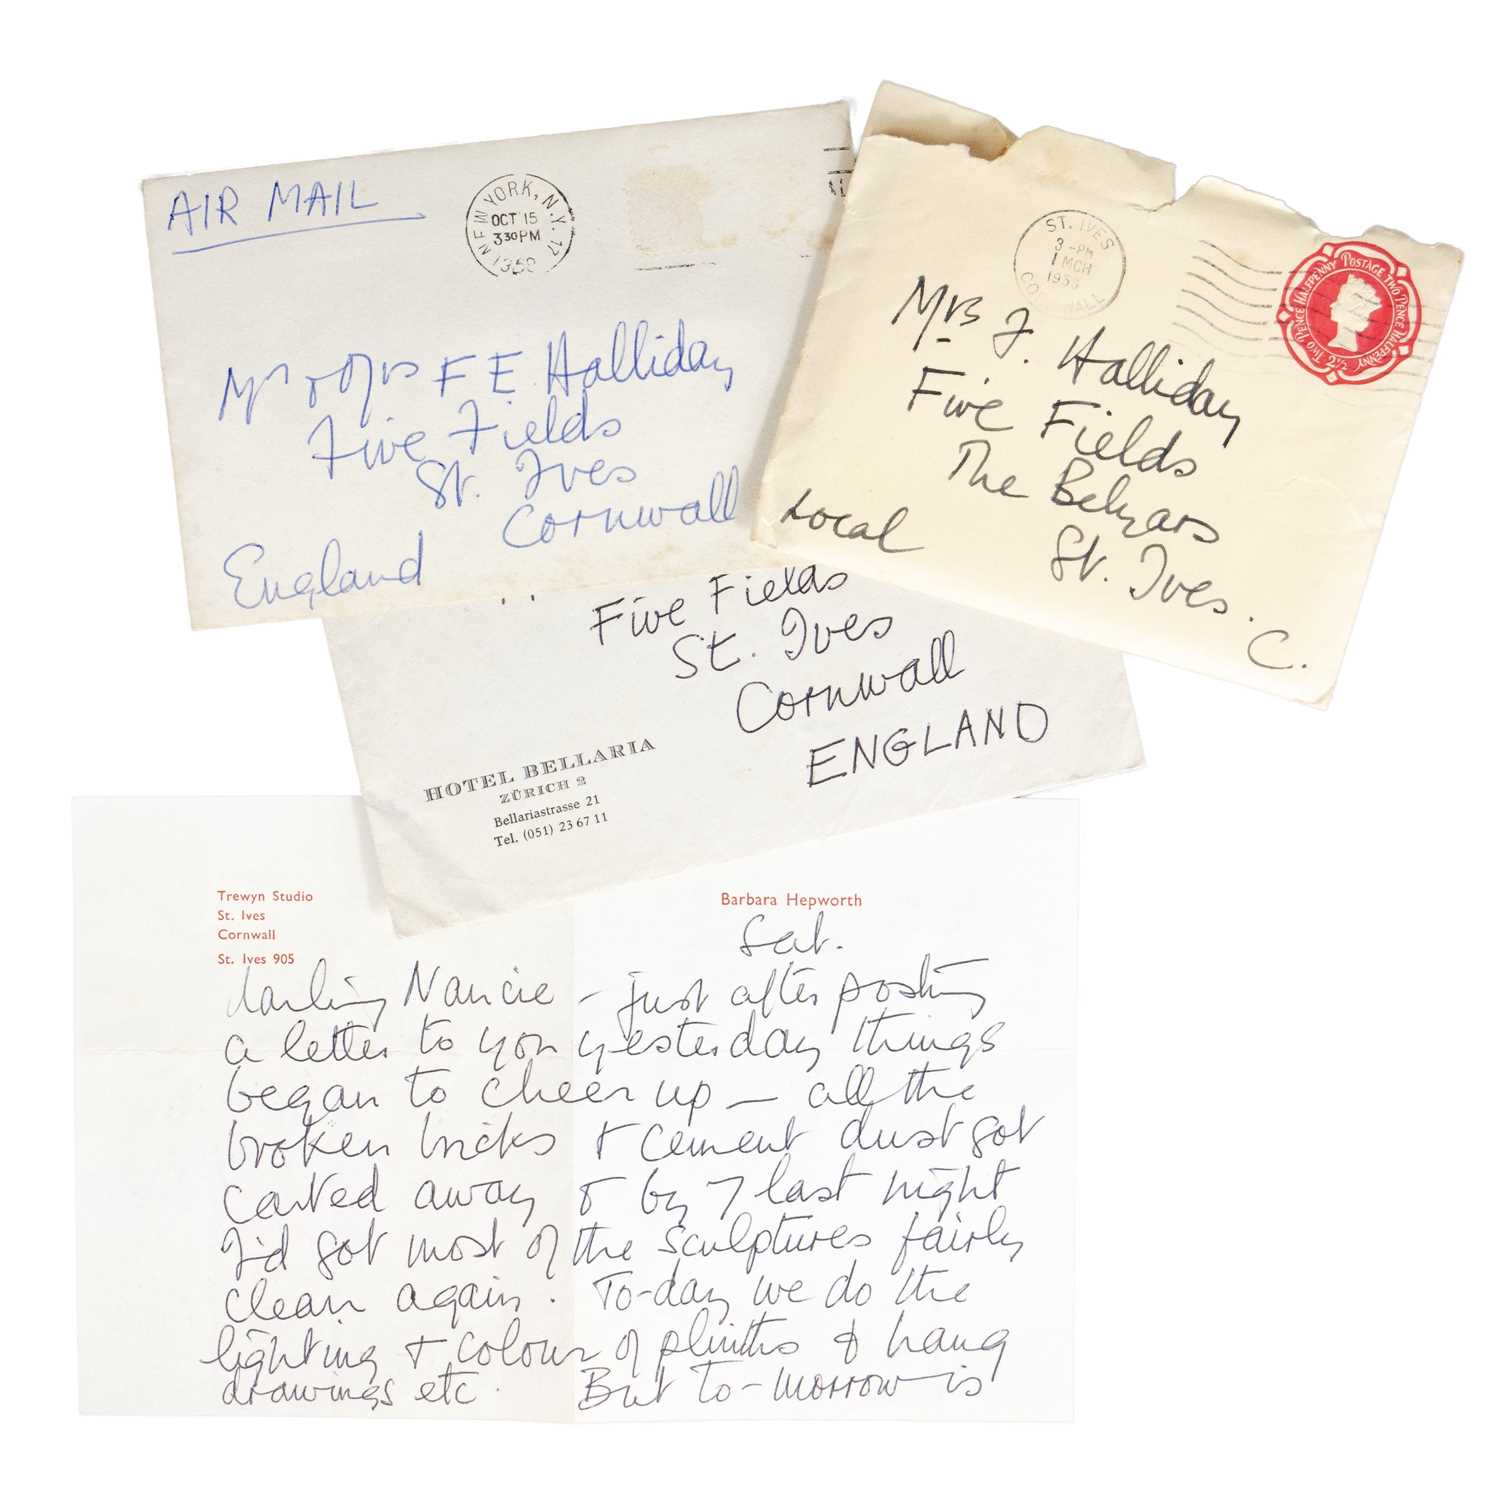 AIR MAIL
NEW YORK, N.Y. 17
OCT 15
330PM
Mr & Mrs F E Halliday
Five Fields
St. Ives
Cornwall
England
ST. IVES
3-PM
1 MCH
CORNWALL
POSTAGE TWO PENCE HALFPENNY
2½
Mrs F. Halliday
Five Fields
The Belyars
St. Ives.
Local
C.
Five Fields
St. Ives
Cornwall
ENGLAND
HOTEL BELLARIA
ZÜRICH 2
Bellariastrasse 21
Tel. (051) 23 67 11
Trewyn Studio
St. Ives
Cornwall
St. Ives 905
Barbara Hepworth
Sat.
darling Nancie – just after posting
a letter to you yesterday things
began to cheer up – all the
broken bricks & cement dust got
carted away & by 7 last night
I'd got most of the sculptures fairly
clean again. To-day we do the
lighting & colour of plinths & hang
drawings etc. But to-morrow is